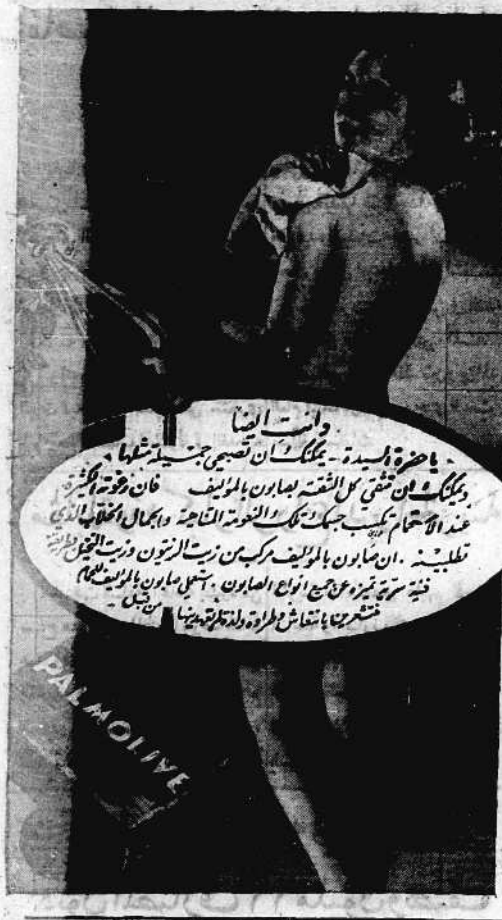 وانتِ ايضاً
يا حضرة السيدة - يمكنك ان تصبحي جميلة مثلها.
ويمكنك ان تثقي كل الثقة بصابون بالموليف فان رغوته الكثيرة
عند الاستحمام تكسب جسمك تلك النعومة الناعمة والجمال الخلاب الذي
تطلبينه. ان صابون بالموليف مركب من زيت الزيتون وزيت النخيل
فنية سرية تميزه عن جميع انواع الصابون. استعملي صابون بالموليف للحمام
فتشعرين بانتعاش وطراوة ولذة لم تعهديها من قبل -
PALMOLIVE